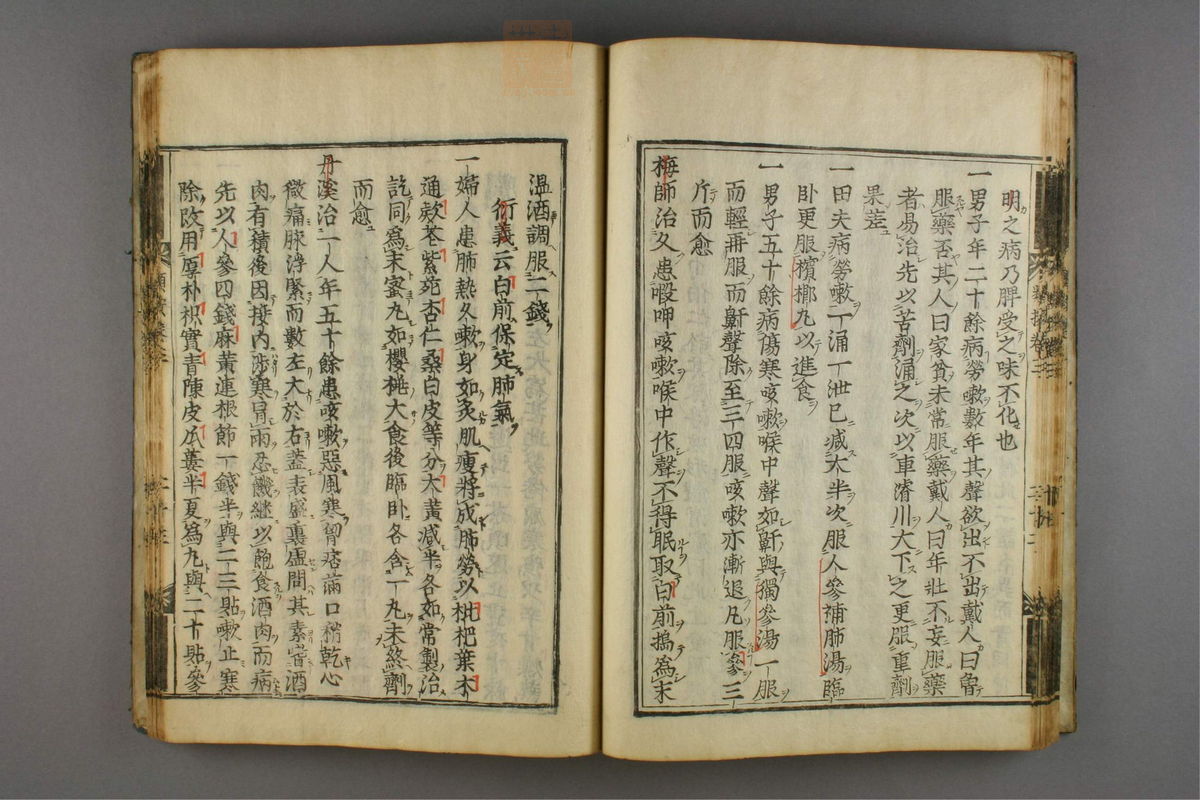 明之病乃脾受之味不化也
一男子年二十餘病勞嗽數年其聲欲出不出戴人曰曾
服藥否其人曰家貧未常服藥戴人曰年壯不妄服藥
者易治先以苦劑涌之次以車濬川大下之更服重劑
果差
一田夫病勞嗽一涌一泄已減太半次服人參補肺湯臨
卧更服檳榔丸以進食
一男子五十餘病傷寒咳嗽喉中聲如鼾與獨參湯一服
而輕再服而鼾聲除至三四服咳嗽亦漸退凡服參三
斤而愈
梅師治久患暇呷咳嗽喉中作聲不得眠取白前搗為末
溫酒調服二錢
衍義云白前保定肺氣
一婦人患肺熱久嗽身如炙肌瘦將成肺勞以枇杷葉木
通款苳紫菀杏仁桑白皮等分大黃減半各如常製治
訖同為末蜜丸如櫻桃大食後臨卧各含一丸未終劑
而愈
丹溪治一人年五十餘患咳嗽惡風寒胷痞滿口稍乾心
微痛脉浮緊而數左大於右蓋表盛裏虛問其素嗜酒
肉有積後因接內涉寒冒雨忍饑繼以飽食酒肉而病
先以人參四錢麻黃連根節一錢半與二三貼嗽止寒
除改用厚朴枳實青陳皮瓜蔞半夏為丸與二十貼參